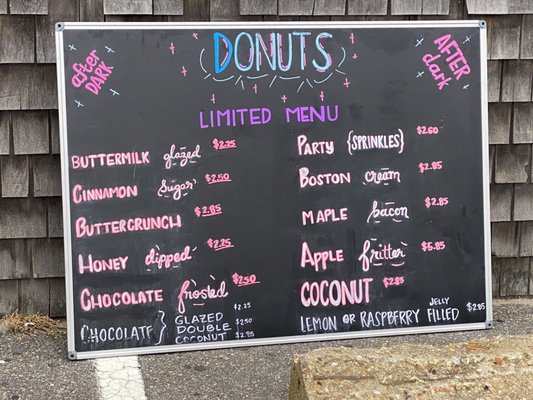 after DARK
DONUTS
AFTER dark
LIMITED MENU
BUTTERMILK glazed $2.25
CINNAMON Sugar $2.50
BUTTERCRUNCH $2.85
HONEY dipped $2.25
CHOCOLATE frosted $2.50
CHOCOLATE } GLAZED $2.25
DOUBLE $2.50
COCONUT $2.85
PARTY {SPRINKLES} $2.60
BOSTON cream $2.85
MAPLE bacon $2.85
APPLE fritter $5.85
COCONUT $2.85
LEMON OR RASPBERRY JELLY FILLED $2.85